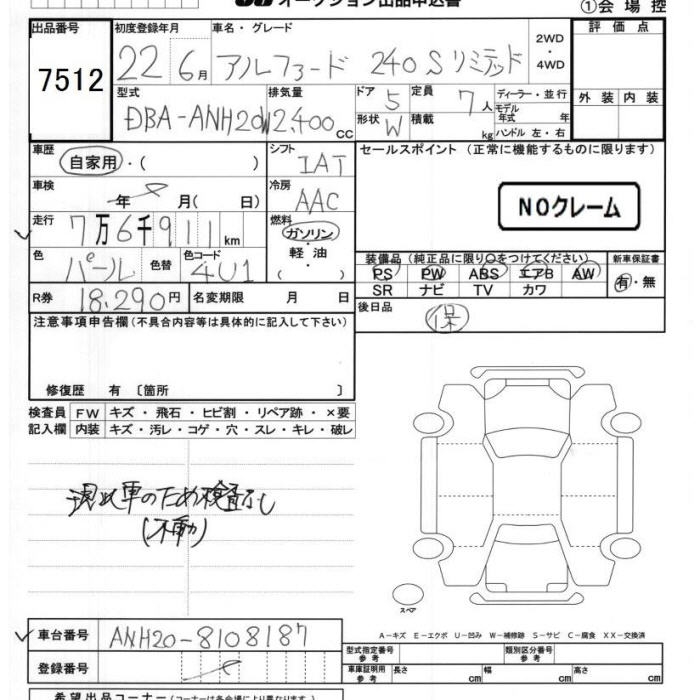 オークション出品申込書
①会場控
出品番号 7512
初度登録年月 22 6月
車名・グレード アルファード 240Sリミテッド
2WD・4WD
評価点
外装 内装
型式 DBA-ANH20W
排気量 2,400cc
ドア 5
形状 W
定員 7人
積載 kg
ディーラー・並行
モデル年式 年
ハンドル 左・右
車歴 自家用・( )
シフト IAT
セールスポイント (正常に機能するものに限ります)
車検 年 月( 日)
冷房 AAC
NOクレーム
走行 7万6千911km
燃料 ガソリン・軽油・( )
色 パール 色替
色コード 4U1
装備品 (純正品に限り○をつけてください)
新車保証書
PS PW ABS エアB AW
SR ナビ TV カワ
有・無
R券 18,290円
名変期限 月 日
後日品 保
注意事項申告欄(不具合内容等は具体的に記入して下さい)
修復歴 有 〔箇所 〕
検査員記入欄
FW キズ・飛石・ヒビ割・リペア跡・×要
内装 キズ・汚レ・コゲ・穴・スレ・キレ・破レ
現状車のため検査なし
(不動)
スペア
A-キズ E-エクボ U-凹み W-補修跡 S-サビ C-腐食 XX-交換済
車台番号 ANH20-8108187
登録番号
型式指定番号 参考
類別区分番号 参考
車庫証明用 参考 長さ cm 幅 cm 高さ cm
希望出品コーナー(コーナーは各会場により異なります)